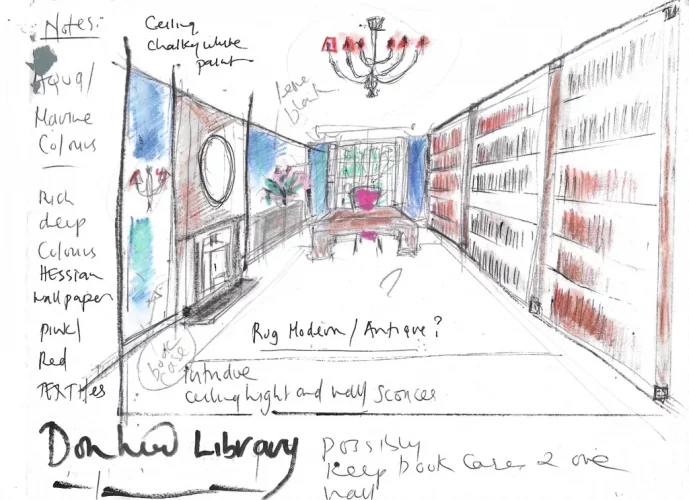 Notes:-
Ceiling
Chalky white
paint
Aqua/
Marine
Colours
Rich
deep
Colours
HESSIAN
wallpaper
pink/
Red
leave
blank
book
case
Rug Modern / Antique?
Introduce
Ceiling light and wall sconces
Library
possibly
keep book cases 2 one
wall